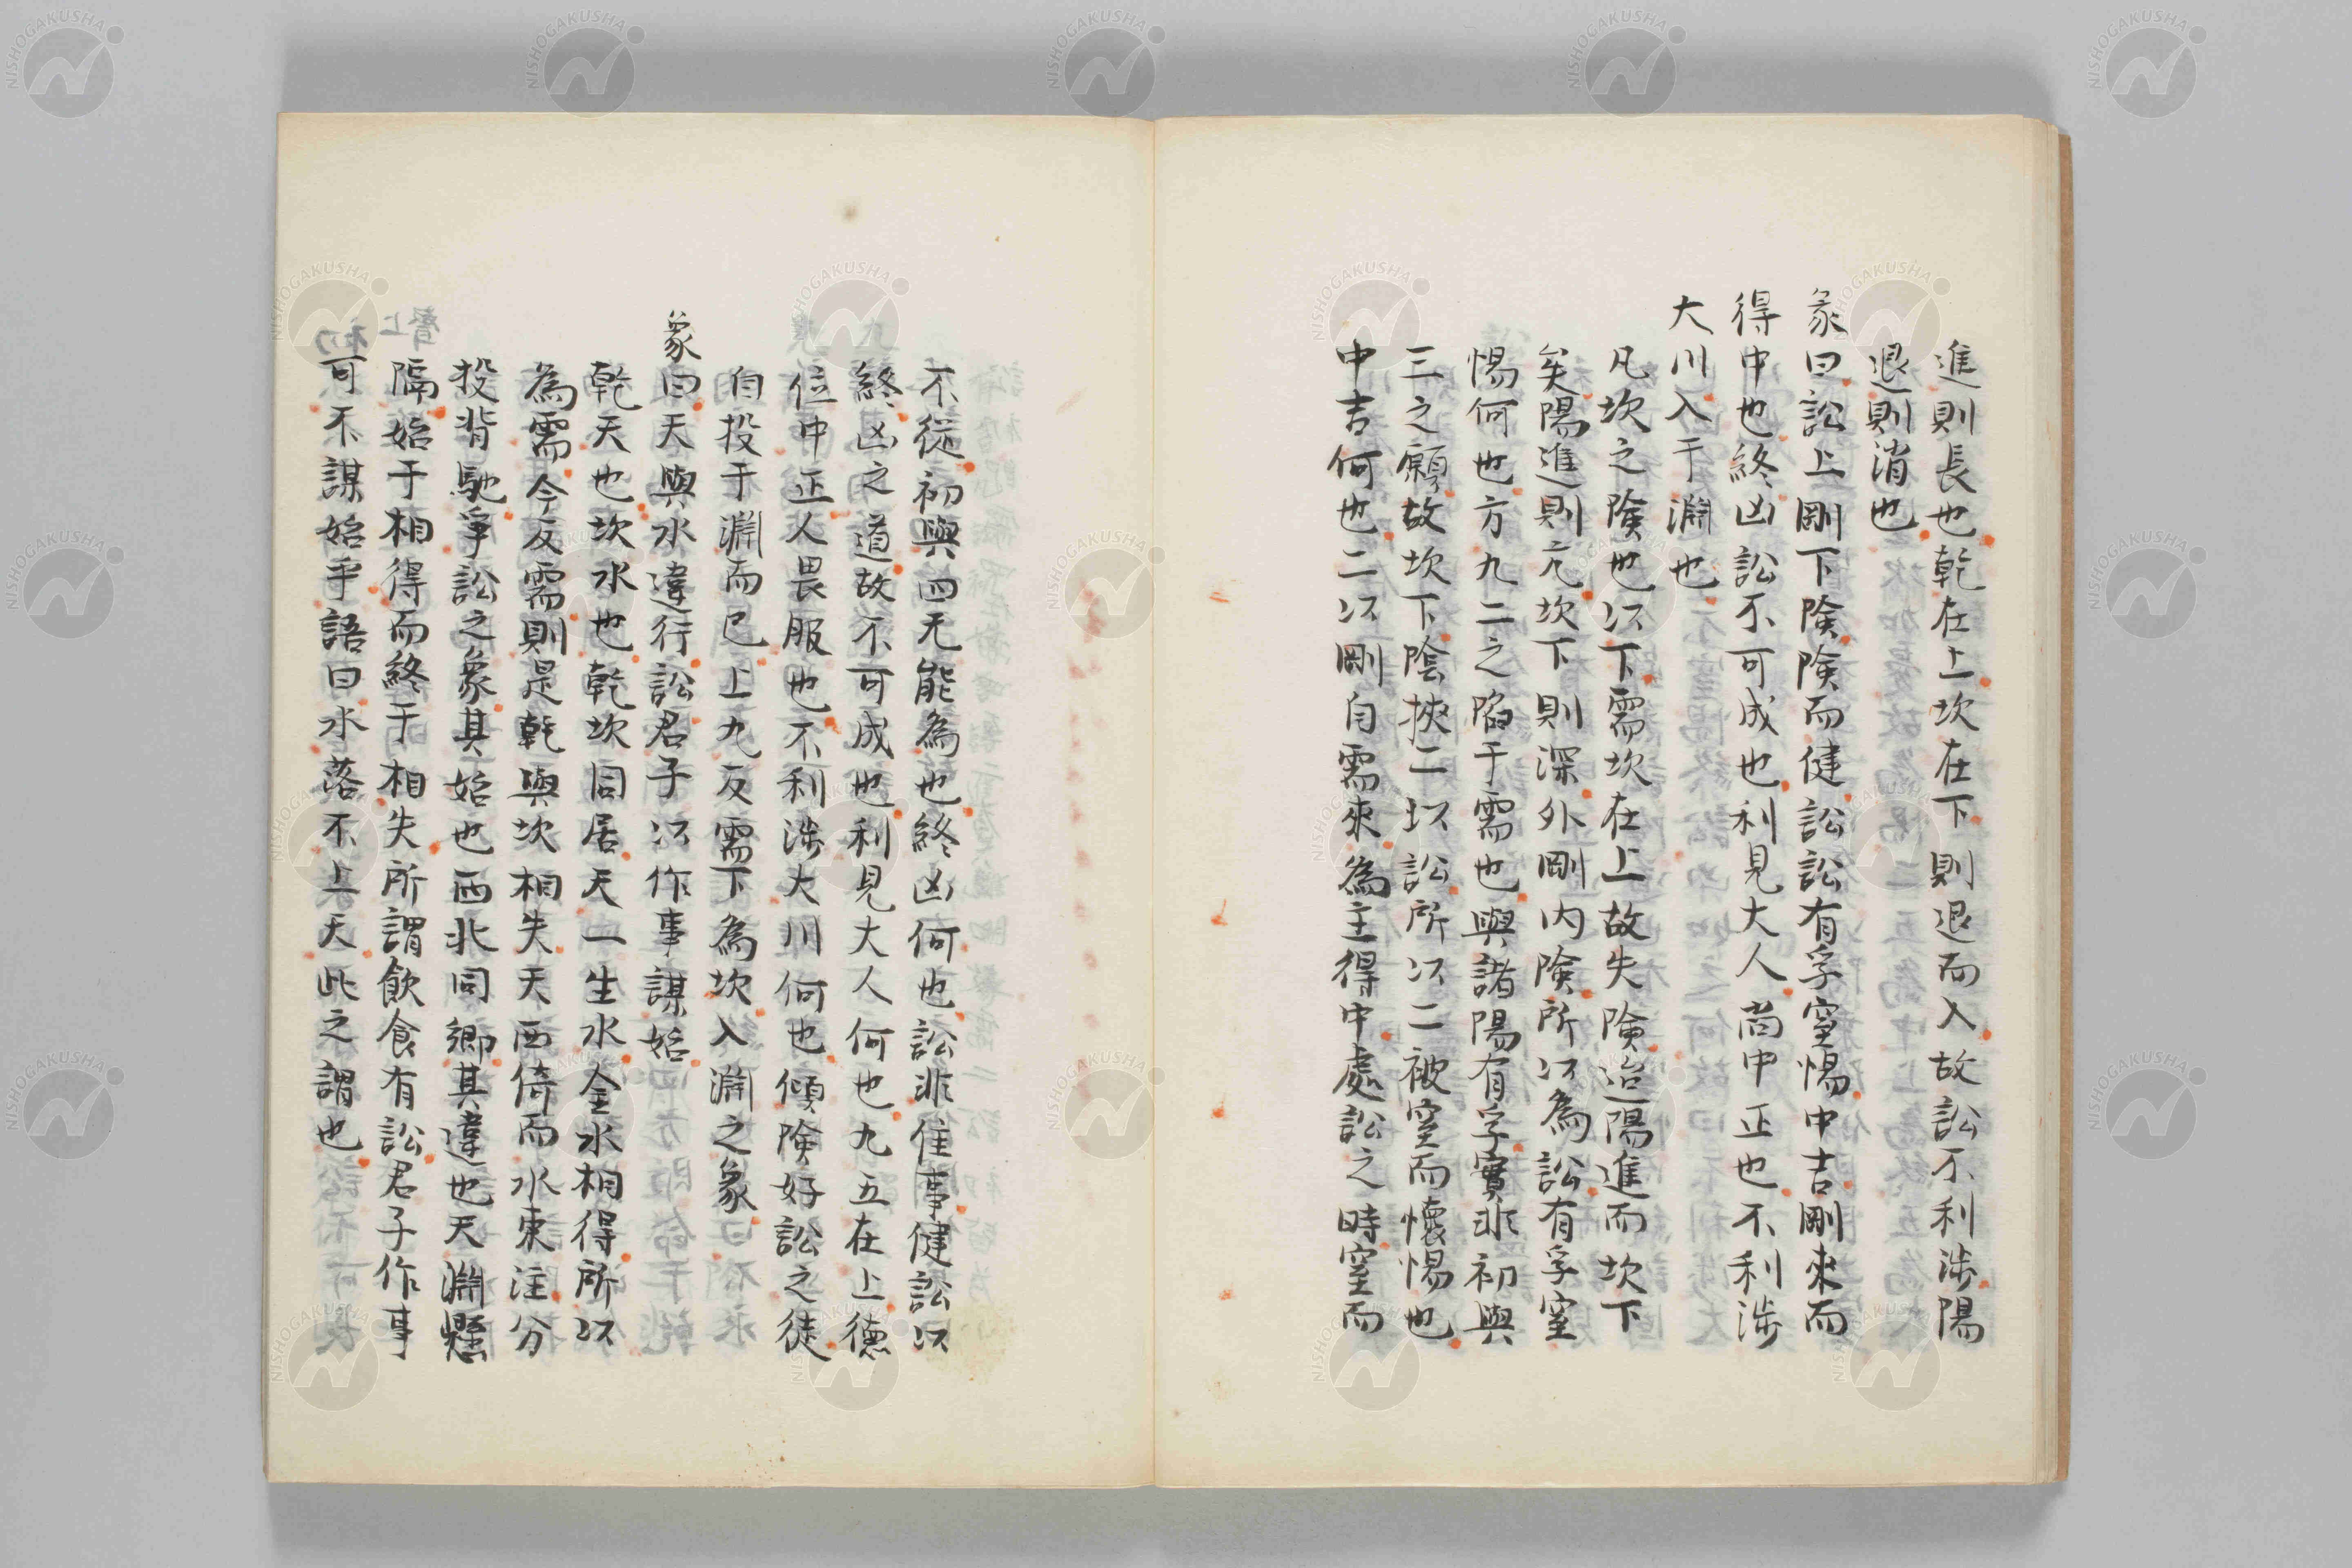 進則長也乾在上坎在下則退而入故訟不利涉陽
退則消也
彖曰訟上剛下険険而健訟訟有孚窒惕中吉剛來而
得中也終凶訟不可成也利見大人尚中正也不利涉
大川入于淵也
凡坎之険也以下需坎在上故失険迨陽進而坎下
矣陽進則亢坎下則深外剛内険所以為訟有孚窒
惕何也方九二之陷于需也與諸陽有孚實非初與
三之願故坎下陰挾二以訟所以二被窒而懷惕也
中吉何也二以剛自需來為主得中處訟之時窒而
不從初與四无能為也終凶何也訟非佳事健訟以
終凶之道故不可成也利見大人何也九五在上德
位中正人畏服也不利涉大川何也傾険好訟之徒
自投于淵而已上九反需下為坎入淵之象
象曰天與水違行訟君子以作事謀始
乾天也坎水也乾坎同居天一生水金水相得所以
為需今反需則是乾與坎相失天西倚而水東注分
投背馳爭訟之象其始也西北同鄉其違也天淵懸
隔始于相得而終于相失所謂飲食有訟君子作事
可不謀始乎語曰水落不上天此之謂也
NISHOGAKUSHA